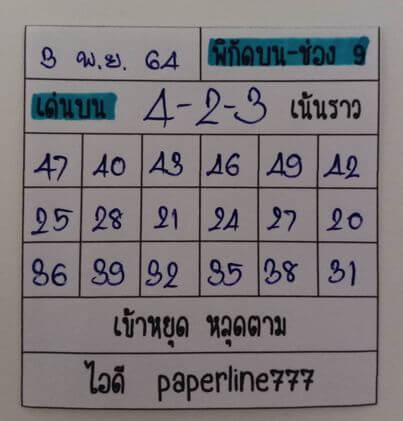 3 พ.ย. 64 พิกัดบน-ช่อง 9
เด่นบน 4-2-3 เน้นราว
47 40 43 46 49 42
25 28 21 24 27 20
36 39 32 35 38 31
เข้าหยุด หลุดตาม
ไอดี paperline777